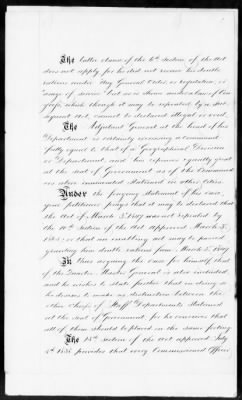 The latter clause of the 6th Section of the Act
does not apply for he did not receive his double
rations under "Any General Order, or regulation, or
usage of service" but as in other cases under law of Con-
gress, which though it may be repealed by a sub-
sequent Act, cannot be declared illegal or void.
The Adjutant General at the head of his
Department is certainly exercising a Command
fully equal to that of a Geographical Division
or Department, and his expenses equally great
at the seat of Government as of the Command-
ers above enumerated stationed in other cities.
Under the foregoing statement of his case,
your petitioner prays that it may be declared that
the Act of March 3d 1849 was not repealed by
the 10th Section of the Act approved March 3,
1865; or that an enabling act may be passed
granting him double rations from March 3d 1849
In thus arguing the case for himself that
of the Quarter Master General is also included,
and he wishes to state further that in doing so
he desires to make no distinction between the
other Chiefs of Staff Departments stationed
at the seat of Government, for he conceives that
all of them should be placed in the same footing.
The 15th Section of the Act approved July
4th 1836 provides that every Commissioned Officer